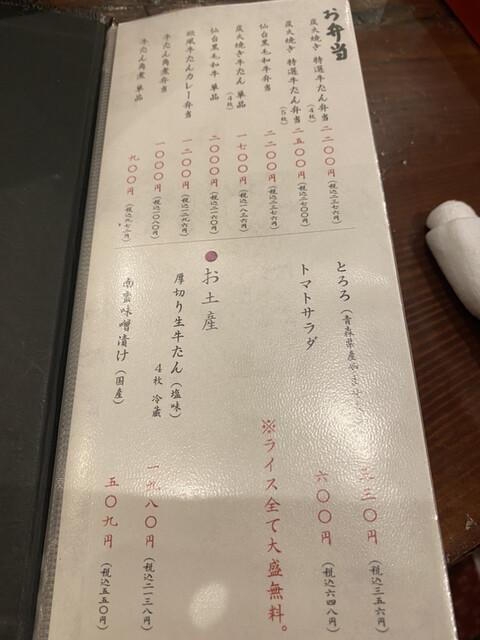 お弁当
炭火焼き 特選牛たん弁当 (4枚) 二二〇〇円 (税込二三七六円)
炭火焼き 特選牛たん弁当 (5枚) 二五〇〇円 (税込二七〇〇円)
仙台黒毛和牛弁当 二二〇〇円 (税込二三七六円)
炭火焼き牛たん 単品 (4枚) 一七〇〇円 (税込一八三六円)
仙台黒毛和牛 単品 二〇〇〇円 (税込二一六〇円)
欧風牛たんカレー弁当 一二〇〇円 (税込一二九六円)
牛たん角煮弁当 一〇〇〇円 (税込一〇八〇円)
牛たん角煮 単品 九〇〇円 (税込九七二円)
とろろ (青森県産 三三〇円 (税込三五六円)
トマトサラダ 六〇〇円 (税込六四八円)
※ライス全て大盛無料。
●お土産
厚切り生牛たん (塩味)
4枚 冷蔵 一九八〇円 (税込二一三八円)
南蛮味噌漬け (国産) 五〇九円 (税込五五〇円)